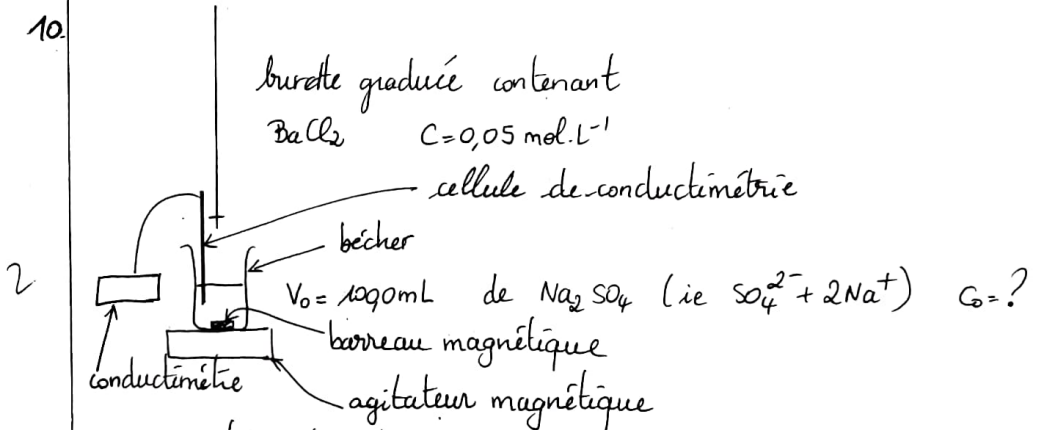 10.
burette graduée contenant
BaCl₂ C=0,05 mol.L⁻¹
cellule de conductimétrie
bécher
2
V₀ = 100,0mL de Na₂SO₄ (ie SO₄²⁻ + 2Na⁺) C₀=?
barreau magnétique
conductimètre
agitateur magnétique